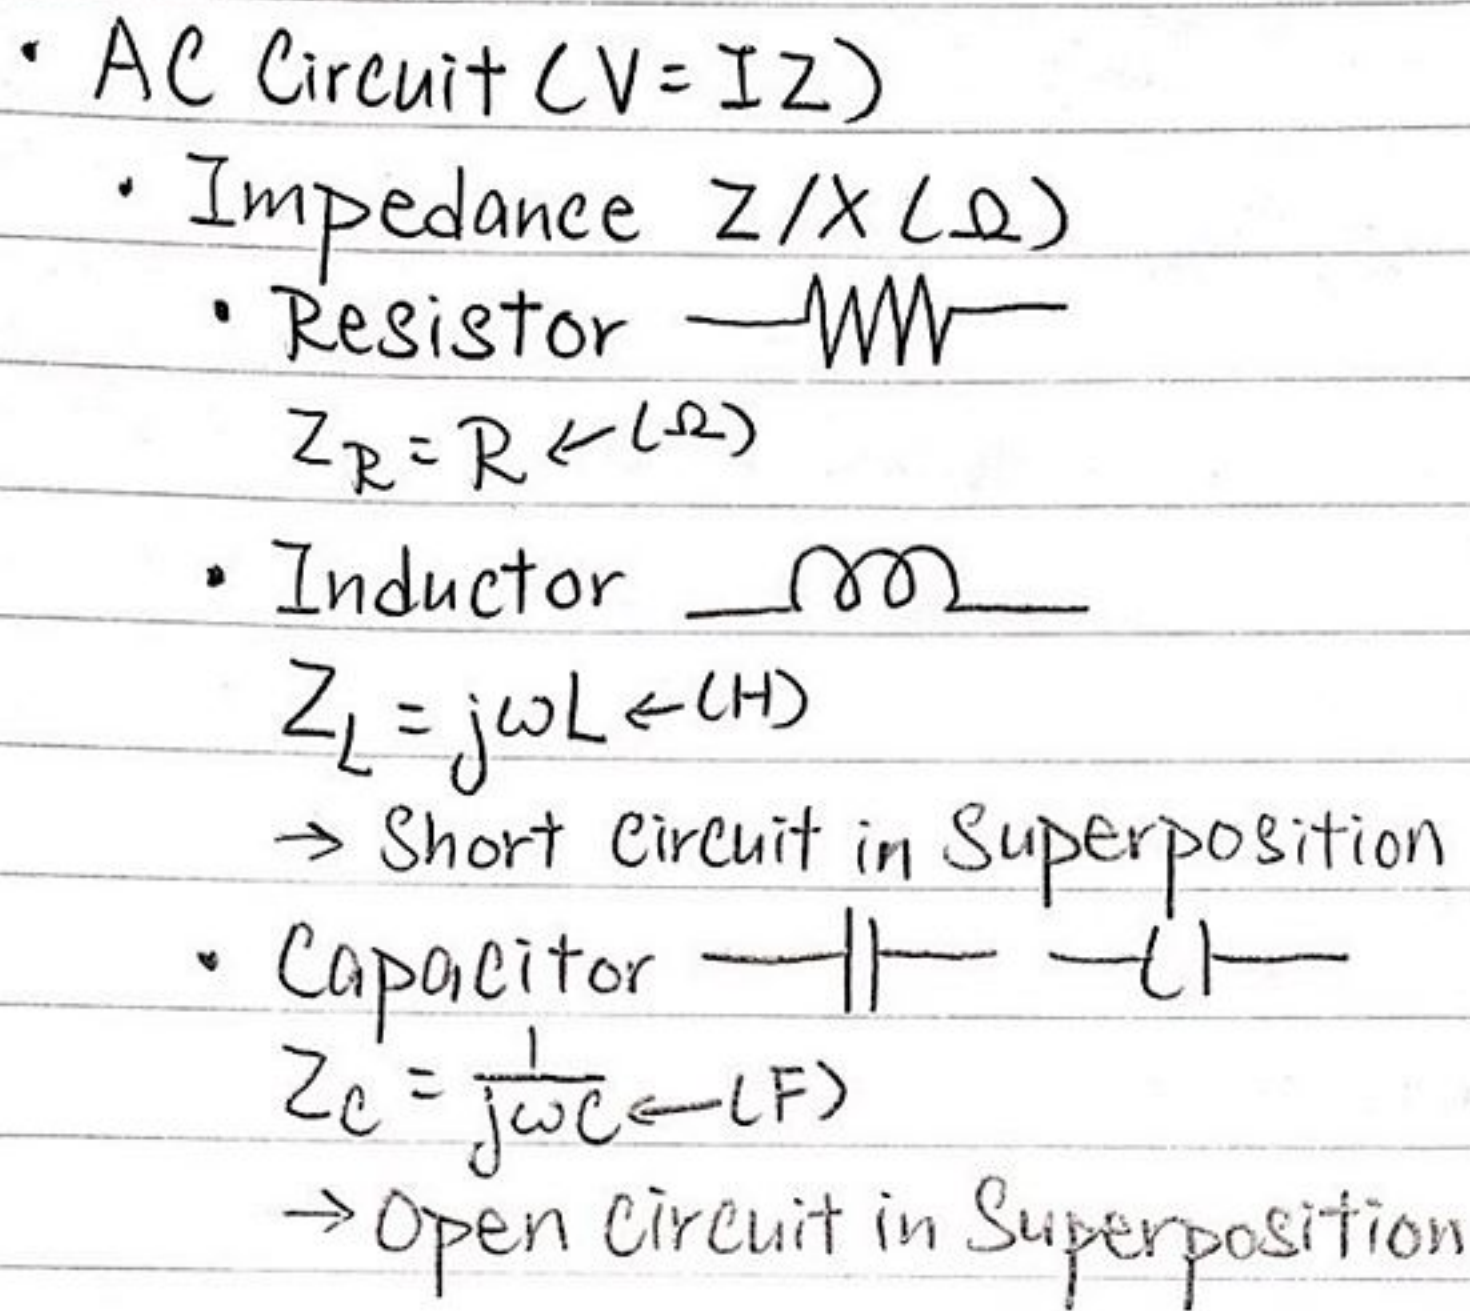 • AC Circuit (V=IZ)
• Impedance Z/X (Ω)
• Resistor
Z_R = R ← (Ω)
• Inductor
Z_L = jωL ← (H)
→ Short Circuit in Superposition
• Capacitor
Z_C = 1/jωC ← (F)
→ Open Circuit in Superposition